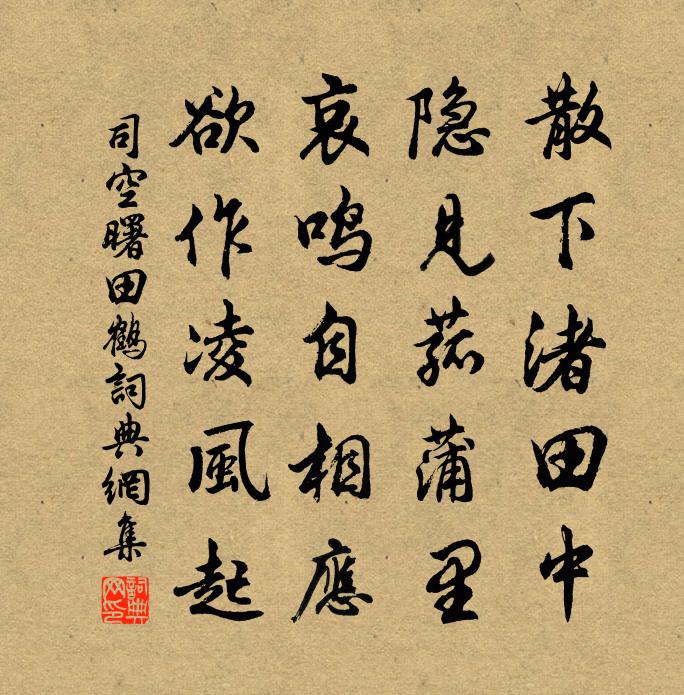 散下渚田中
隐見菰蒲里
哀鳴自相應
欲作凌風起
司空曙田鶴詞典網集
詞典網印